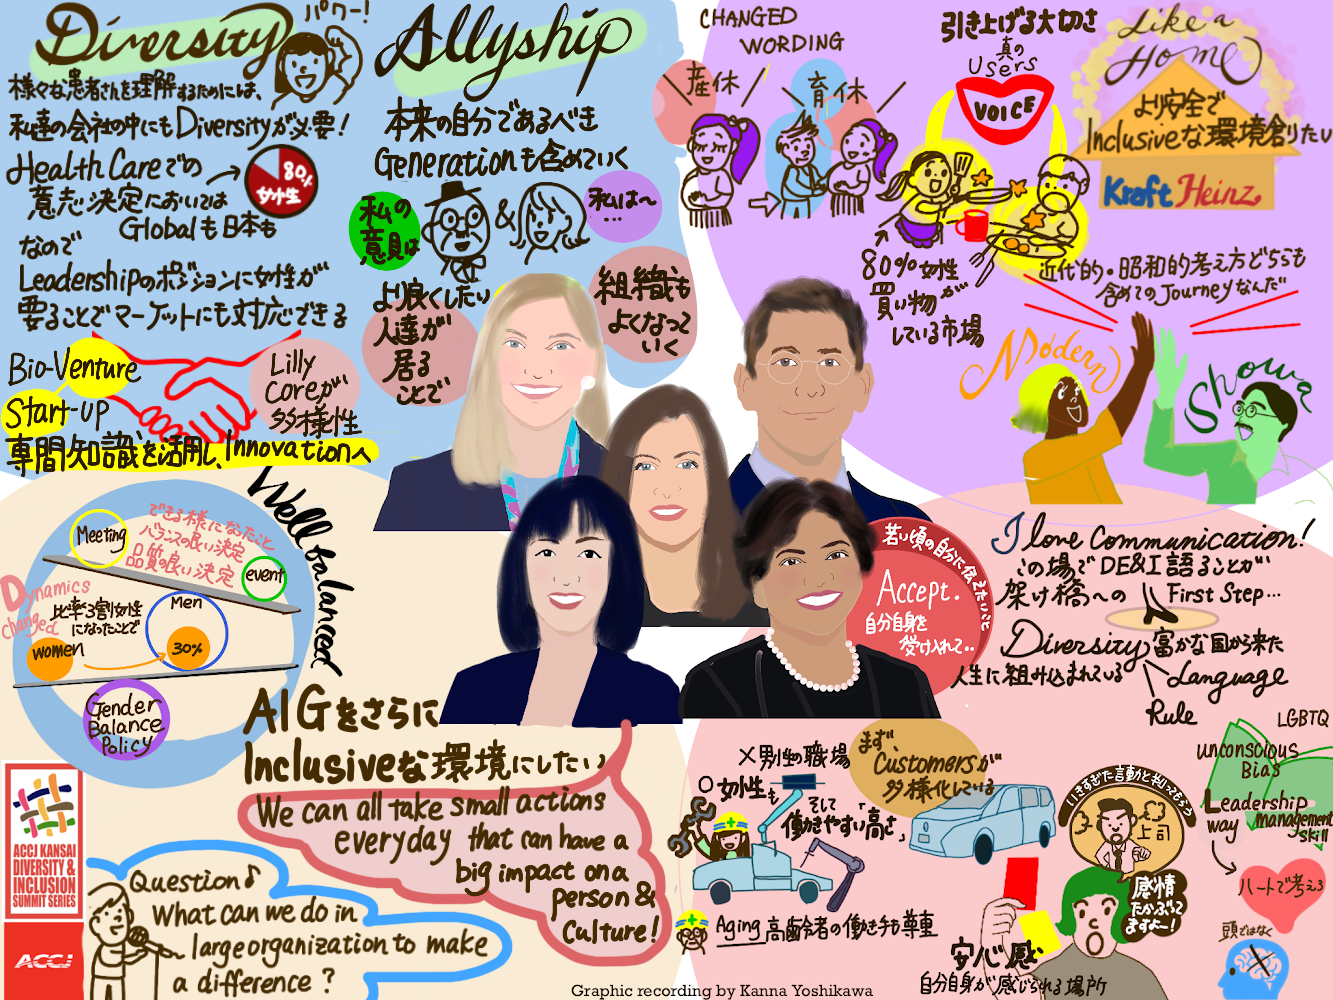 Diversity
パワー!
様々な患者さんを理解するためには、
私達の会社の中にもDiversityが必要!
Health Careでの
意志決定においては
Globalも日本も
80%
女性
なので
Leadershipのポジションに女性が
要ることでマーケットにも対応できる
Bio-Venture
Start-up
Lilly
Coreが
多様性
専門知識を活用し、Innovationへ
Allyship
本来の自分であるべき
Generationも含めていく
私の
意見は
&
私は〜
...
より良くしたい
人達が
居る
ことで
組織も
よくなって
いく
CHANGED
WORDING
産休
育休
引き上げる大切さ
真の
Users
VOICE
80%女性
買い物が
している市場
Like a
Home
より安全で
Inclusiveな環境創りたい
Kraft Heinz
近代的・昭和的考え方どちらも
含めてのJourneyなんだ
Modern
Showa
Well balanced
Meeting
できる様になったこと
バランスの良い決定
品質の良い決定
event
Dynamics
changed
比率3割女性
になったことで
Men
women
30%
Gender
Balance
Policy
AIGをさらに
Inclusiveな環境にしたい
We can all take small actions
everyday that can have a
big impact on a
person &
Culture!
ACCJ KANSAI
DIVERSITY &
INCLUSION
SUMMIT SERIES
ACCJ
Question♪
What can we do in
large organization to make
a difference?
若い頃の自分に伝えたいこと
Accept.
自分自身を
受け入れて..
I love Communication!
この場でDE&I語ることが
架け橋への First Step...
Diversity 富かな国から来た
人生に組み込まれている
Language
Rule
×男性の職場
○女性も
そして
働きやすい「高さ」
まず、
Customersが
多様化している
Aging 高齢者の働き手も尊重
いきすぎた言動と判ってたら
上司
感情
たかぶって
ますよ〜!
安心感
自分自身が感じられる場所
LGBTQ
unconscious
Bias
Leadership
way
management
skill
ハートで考える
頭ではなく
Graphic recording by Kanna Yoshikawa